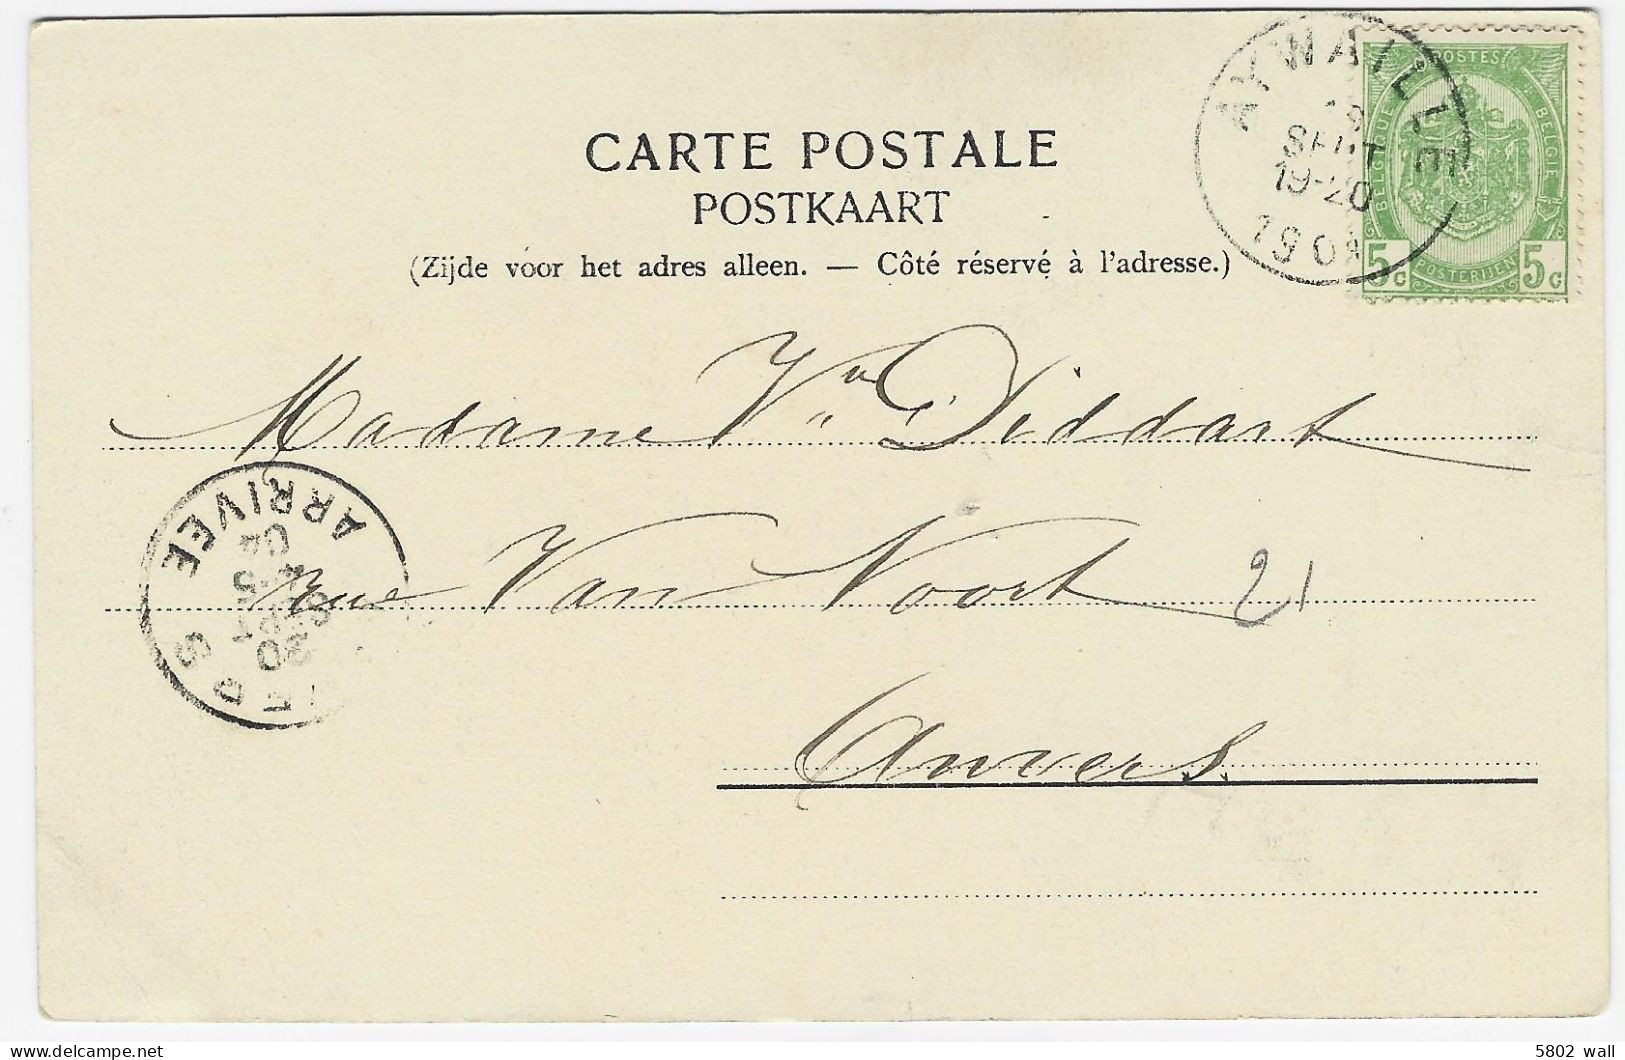 CARTE POSTALE
POSTKAART
(Zijde voor het adres alleen. — Côté réservé à l'adresse.)
AYWAILLE
SEPT
19-20
190
POSTES
BELGIQUE
BELGIE
POSTERIJEN
5c 5c
Madame Vve Diddart
rue Van Noort 21
Anvers
ARRIVEE
5802 wall